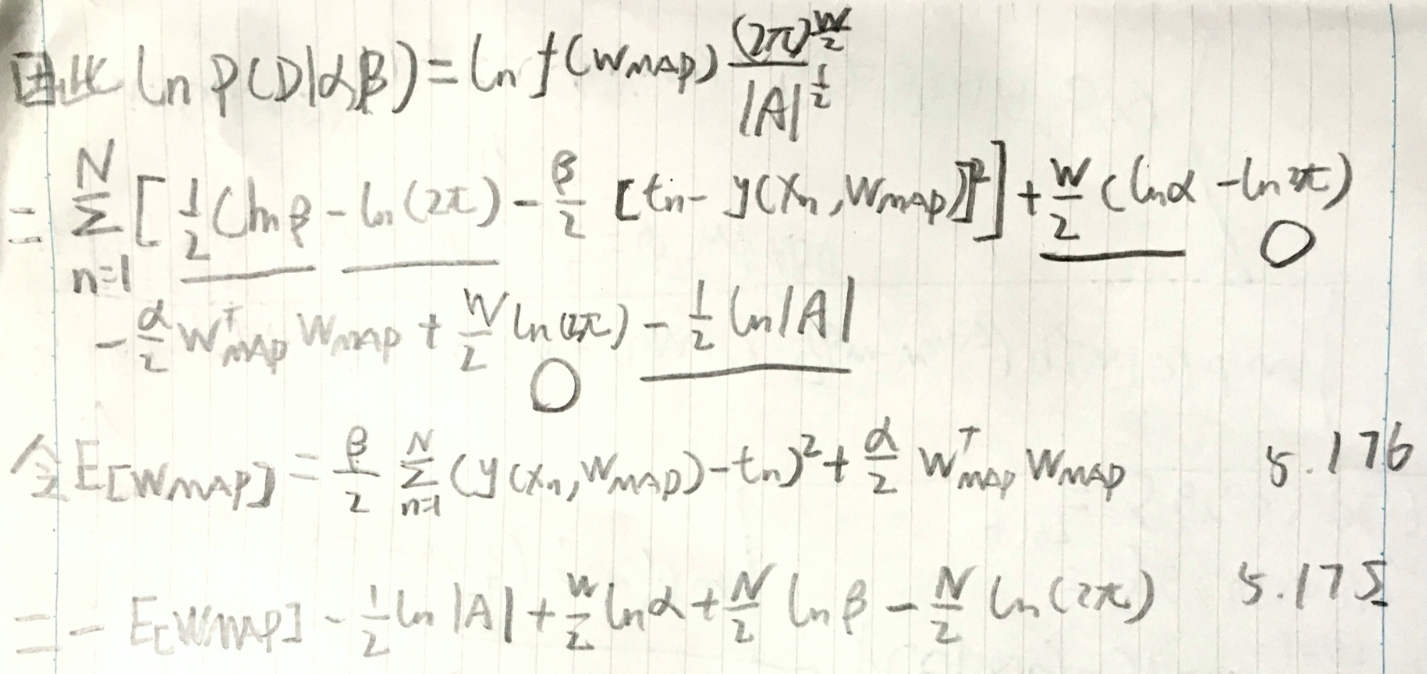 因此 ln p(D|α,β) = ln f(W_MAP) (2π)^{W/2} / |A|^{1/2}
= Σ_{n=1}^{N} [ 1/2 (ln β - ln(2π) - β/2 [t_n - y(x_n, W_MAP)]² ] + W/2 (ln α - ln 2π)
- α/2 W_MAP^T W_MAP + W/2 ln(2π) - 1/2 ln|A|
令 E[W_MAP] = β/2 Σ_{n=1}^{N} (y(x_n, W_MAP) - t_n)² + α/2 W_MAP^T W_MAP 5.176
= - E[W_MAP] - 1/2 ln |A| + W/2 ln α + N/2 ln β - N/2 ln(2π) 5.175